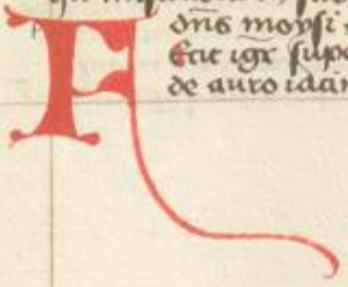 dn̄s moysi
F Ecit igr̄ supe
de auro iacin